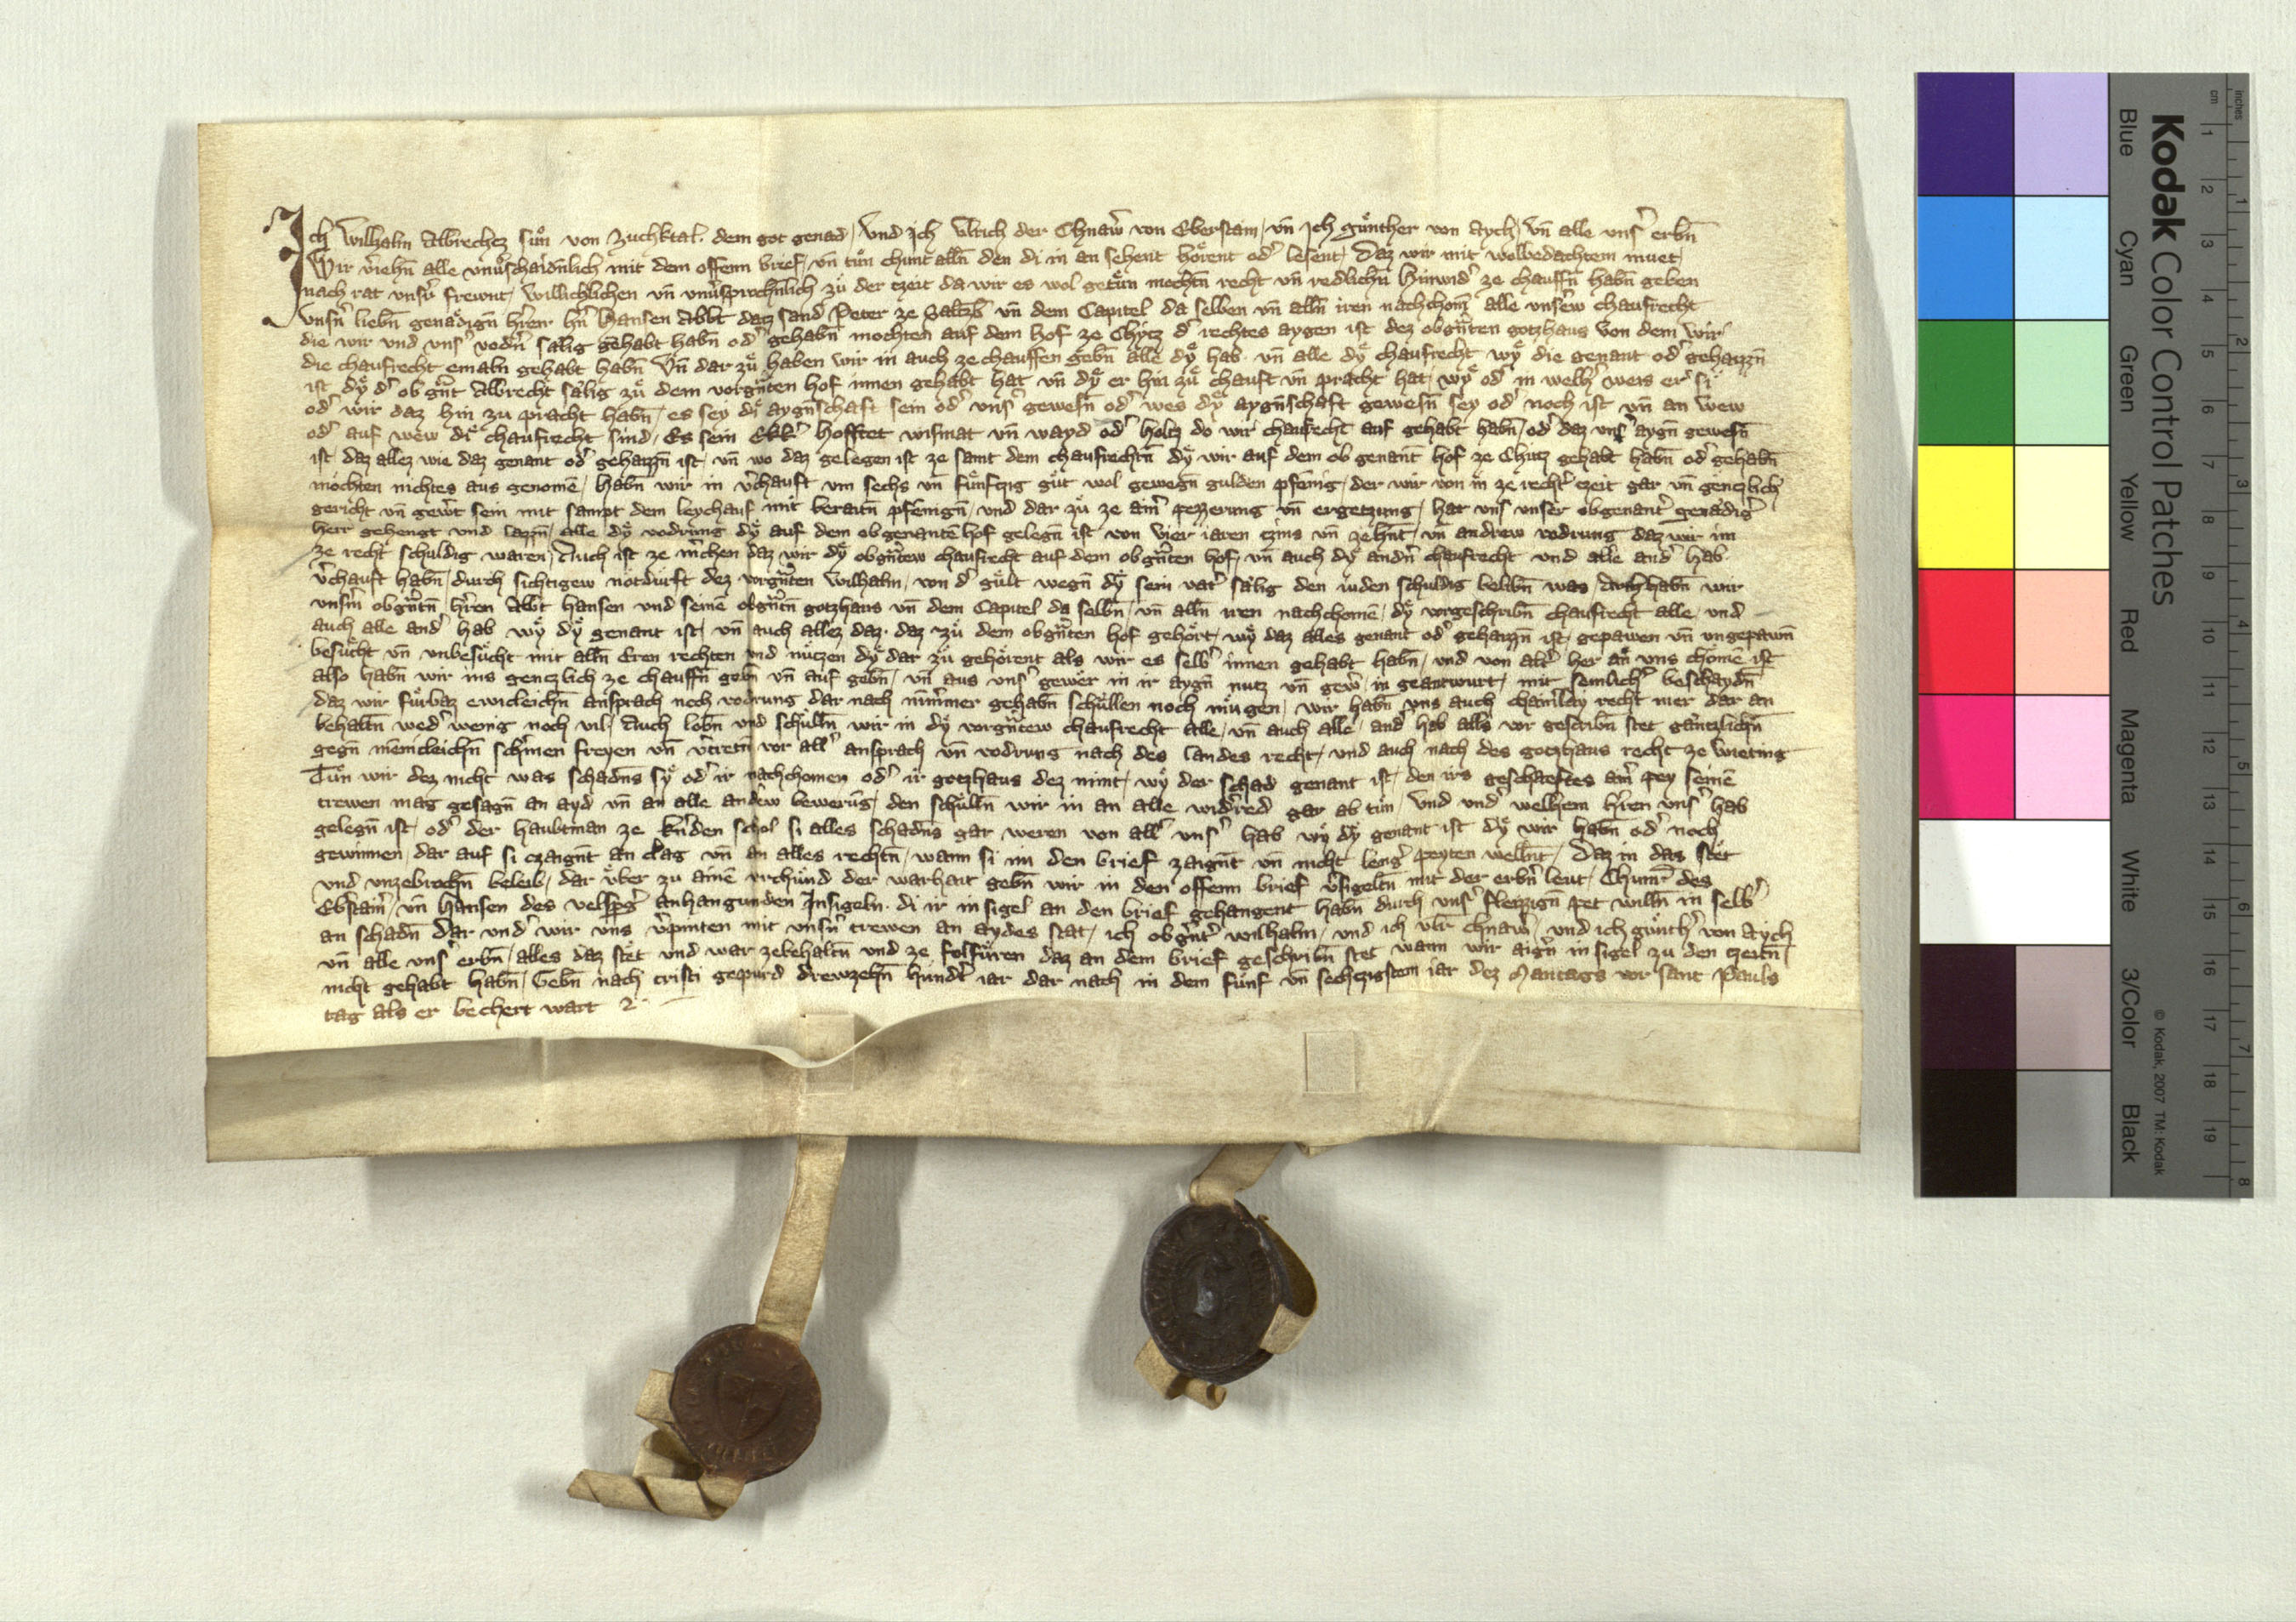 Ich Wilhalm Albrechez sůn von Zuchktal. dem got genad, Und Ich Ulrich der Chnaẘ von Eberstain, vn̄ Ich Gu̇nther von Aych, Vn̄ alle vnsˀ erbn̄
Wir v̓iehn̄ alle vnu̓schaidn̄lich mit dem offenn brief, vn̄ tůn chunt alln̄ den di in an sehent hȯrent odˀ lesent, Daz wir mit wolbedachtem muet,
nach rat vnsˀˀ frewnt, willichlichen vn̄ vnu̓sprochn̄lich zů der czeit da wir es wol getůn mochtn̄ recht vn̄ redlichn̄ Hinwidˀ ze chauffn̄ habn̄ geben
vnsˀn̄ liebn̄ genȧdign̄ hˀren hˀn̄ Hansen Abbt datz sand Peter ze Saltzb̄ vn̄ dem Capitel da selben vn̄ alln̄ iren nachchom̄ alle vnsˀew chaufrecht
die wir und vnsˀ vodˀn̄ sȧlig gehabt habn̄ odˀ gehabn̄ mochten auf dem hof ze Chyͤtz dˀ rechtes aygen ist dez obgn̄ten gotzhaus von dem wir
die chaufrecht emaln̄ gehabt habn̄ Vn̄ dar zů haben wir in auch ze chauffen gebn̄ alle dÿ hab. vn̄ alle dÿ chaufrecht wÿ die genant odˀ gehaizzn̄
ist dÿ dˀ obgn̄t Albrecht sȧlig zů dem vorgn̄ten hof innen gehabt hat vn̄ dÿ er hin zů chauft vn̄ pracht hat, wÿ odˀ in welhˀ weis er si
odˀ wir daz hin zu pracht habn̄, es sey di aygn̄schaft sein odˀ vnsˀ gewesn̄ odˀ wes dÿ aygn̄schaft gewesn̄ sey odˀ noch ist vn̄ an wew
odˀ auf wew di chaufrecht sind, Es sein Ekkˀ hofstet wismat vn̄ wayd odˀ holtz do wir chaufrecht auf gehabt habn̄, odˀ daz vnsˀ aygn̄ gewesn̄
ist, daz allez wie daz genant odˀ gehaizzn̄ ist, vn̄ wo daz gelegen ist ze samt dem chaufrechtn̄ dÿ wir auf dem ob genant hof ze Chitz gehabt habn̄ odˀ gehabn̄
mochten nichtes aus genomē, habn̄ wir in v̓chauft vm sechs vn̄ fůnfczig gůt wol gewegn̄ gulden pfēnig, der wir von in ze rechtˀ czeit gar vn̄ genczlich
gericht vn̄ gewˀt sein mit sampt dem leychauf mit beraitn̄ pfēnign̄, und dar zů ze ain̓ pezzerung vn̄ ergetzung, hat vns vnser obgenantˀ genȧdigˀ
herr gehengt und lazzn̄, alle dÿ vodrung dÿ auf dem obgenantē hof gelegn̄ ist von Vier iaren czins vn̄ zehnt, vn̄ andrew vodrung daz wir im
ze recht schuldig waren, Auch ist ze m̓chen daz wir dÿ obgn̄tew chaufrecht auf dem obgn̄ten hof, vn̄ auch dÿ andˀn̄ chaufrecht und alle andˀ hab
v̓chauft habn̄, durch sichtigew nȯtdurft dez vorgn̄ten Wilhalm, von dˀ gůlt wegn̄ dÿ sein vatˀ sȧlig den iuden schuldig belibn̄ was, Auch habn̄ wir
vnsˀm̄ obgn̄tn̄ hˀren Abt Hansen und seinē obgn̄tn̄ gotzhaus vn̄ dem Capitel da selbn̄, vn̄ alln̄ iren nachchomē, dÿ vorgeschribn̄ chaufrecht alle, und
auch alle andˀ hab wÿ dÿ genant ist, vn̄ auch allez daz. daz zů dem obgn̄ten hof gehȯrt, wÿ daz alles genant odˀ gehaizzn̄ ist, gepawen vn̄ ungepawn̄
besůcht vn̄ unbesůcht mit alln̄ Eren rechten und nůtzen dÿ dar zů gehȯrent als wir es selbˀ innen gehabt habn̄, und von altˀ her an vns chomē ist
also habn̄ wir ins genczlich ze chauffn̄ gebn̄ vn̄ auf gebn̄, vn̄ aus vnsˀ gewer in ir aygn̄ nutz vn̄ gewˀ in geantwurt, mit semlichˀ beschaydn̄
daz wir fůrbaz ewicleichn̄ ansprach noch vodrung dar nach nim̄mer gehabn̄ schůllen noch můgen, wir habn̄ vns auch chain̓lay recht mer dar an
behaltn̄ wedˀ wenig noch vil, Auch lobn̄ und schůlln̄ wir in dÿ vorgn̄tew chaufrecht alle, vn̄ auch alle andˀ hab alls vor gescribn̄ stet gȧntzlichn̄
gegn̄ mēnicleichn̄ schˀmen freyen vn̄ v̓tretn̄ vor allˀ ansprach vn̄ vodrung nach des landes recht, und auch nach des gotzhaus recht ze Wieting
Tůn wir dez nicht was schadn̄s sÿ odˀ ir nachchomen odˀ ir gotzhaus dez nimt, wÿ der schad genant ist, den irs geschaeftes ain̓ pey seinē
trewen mag gesagn̄ an ayd vn̄ an alle andˀew bewerūg, den schůlln̄ wir in an alle widˀred gar ab tůn, Und undˀ welhem hˀren vnsˀ hab
gelegn̄ ist, odˀ der haubtman ze kˀnden schol si alles schadn̄s gar weren von allˀ vnsˀ hab wÿ dÿ genant ist dÿ wir habn̄ odˀ noch
gewinnen, dar auf si czaignt an chlag vn̄ an alles rechtn̄, wann si im den brief zaignt vn̄ nicht lengˀ peyten wellnt, Daz in daz stėt
und vnzebrochn̄ beleib, dar u̇ber zu ainē vrchůnd der warhait gebn̄ wir in den offenn brief v̓sigeltn̄ mit der erbn̓ leut, Chunrˀ des
Ebstain̓, vn̄ Hansen des velspgˀ anhangunden Insigeln. di ir insigel an den brief gehangent habn̄ durch vnsˀ fleizzign̄ pet willn̄ in selbˀ
an schadn̄ Dar undˀ wir vns v̓pinten mit vnsˀn̄ trewen an aydes stat, ich obgn̄tˀ wilhalm, und ich vlr̄ chnaẘ, und ich gůnthˀ von Aych
vn̄ alle vnsˀ erbn̄, alles daz stėt und war zebehaltn̄ und ze folfůren daz an dem brief geschribn̄ stet wann wir aign̓ insigel zu den czeitn̄,
nicht gehabt habn̄, Gebn̄ nach cristi gepurd drewzehn̄ hundˀt iar dar nach in dem fůnf vn̄ sechczigstem iar dez Mantags vor sant Pauls
tag als er bechert wart
Kodak Color Control Patches
Blue Cyan Green Yellow Red Magenta White 3/Color Black
© Kodak, 2007 TM: Kodak
cm 1 2 3 4 5 6 7 8 9 10 11 12 13 14 15 16 17 18 19
inches 1 2 3 4 5 6 7 8